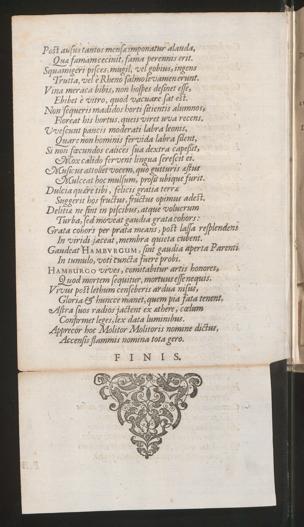 Post ausus tantos mensa imponatur alauda,
Qua famam cecinit, fama perennis erit.
Squamigeri pisces, mugil, vel gobius, ingens
Trutta, vel è Rheno salmo levamen erunt.
Vina meraca bibis, non hospes desinet esse,
Ehibat è vitro, quod vacuare sat est.
Non sequeris madidos horti sitientis alumnos,
Floreat his hortus, queis viret uva recens.
Vivescunt paucis moderati labra leonis,
Quare non hominis fervida labra silent,
Si non fœcundos calices sua dextra capessit,
Mox calido fervens lingua seresćit ei.
Musicus attollet vocem, quo gutturis æstus
Mulceat hoc mulsum, prosit ubique furit.
Dulcia quære tibi, felicis gratia terræ
Suggerit hos fructus, fructus opimus adest.
Delitiæ ne sint in piscibus, atque volucrum
Turba, sed moveat gaudia grata cohors:
Grata cohors per prata means, post lassa resplendens
In viridi jaceat, membra quieta cubent.
Gaudeat HAMBURGUM, sint gaudia aperta Parenti
In tumulo, voti cuncta fuere probi.
HAMBURGO vives, comitabitur artis honores,
Quod mortem sequitur, mortuus esse nequis.
Vivus post lethum censeberis ardua nisus,
Gloria & huncce manet, quem pia fata tenent,
Astra suos radios jactent ex æthere, cælum
Confirmet leges, lex data luminibus.
Apprecor hoc Molitor Molitoris nomine dictus,
Accensis flammis nomina tota gero.
FINIS.